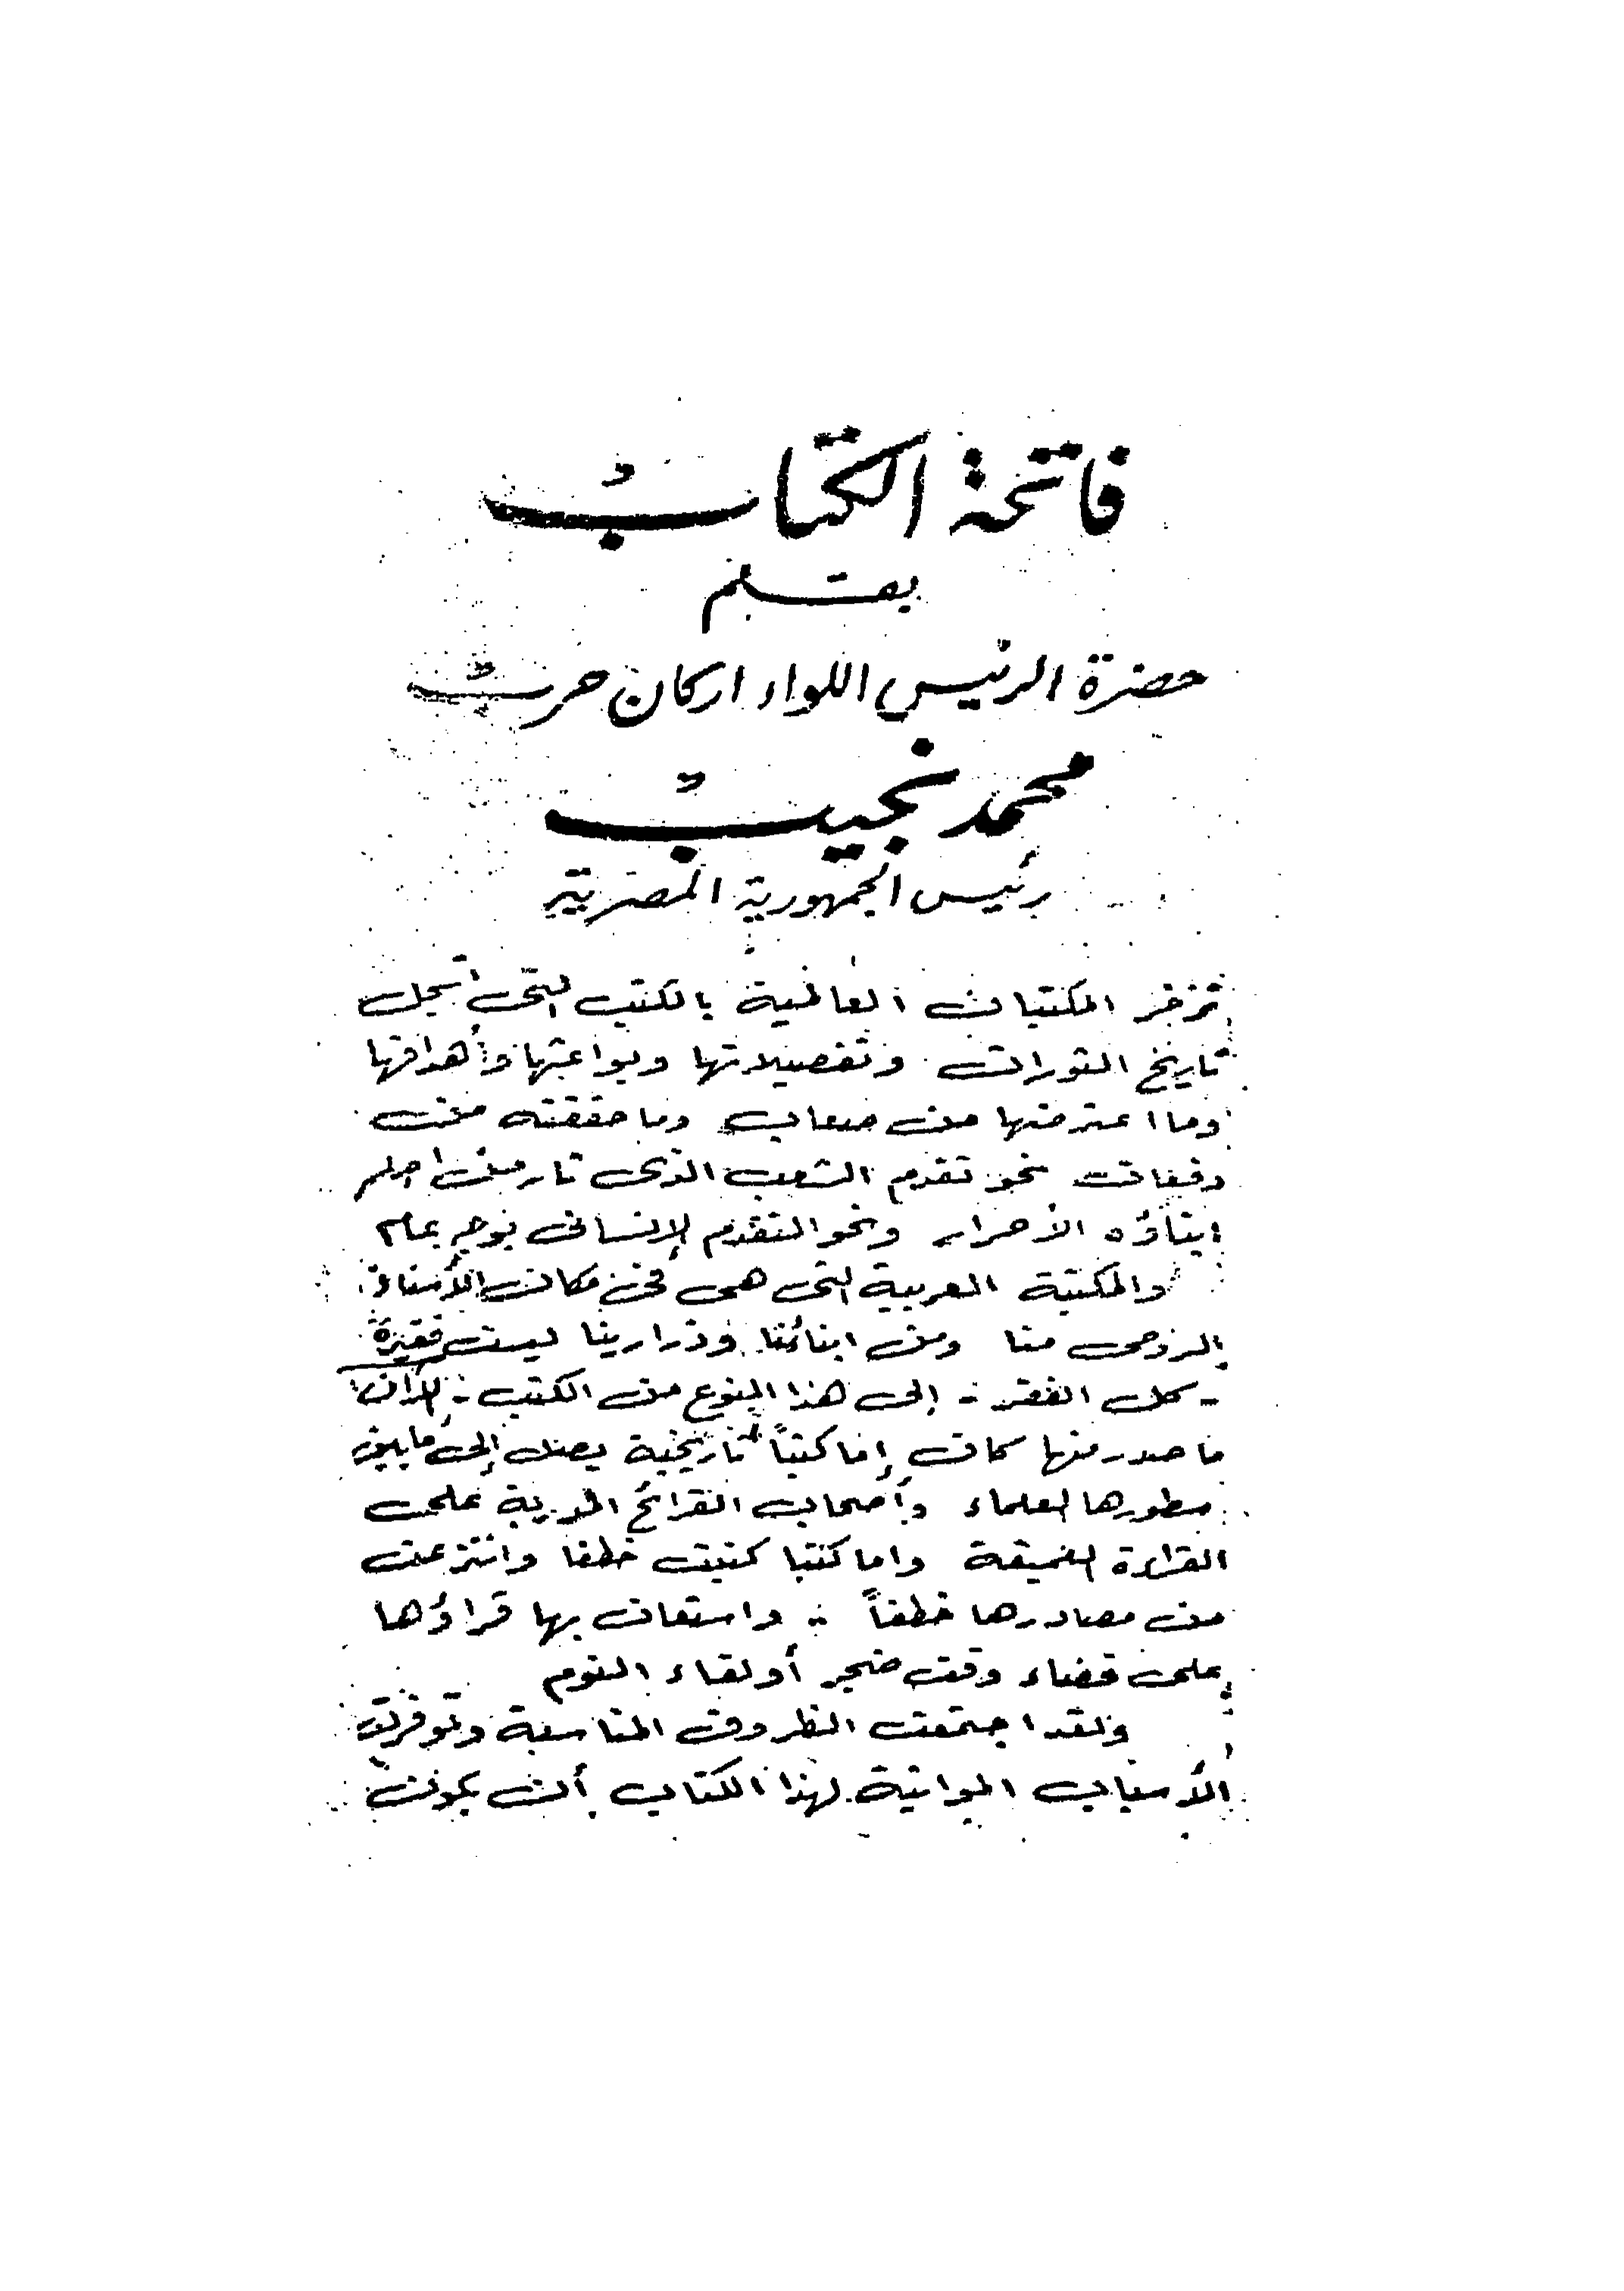 فاتحة الكتاب
بقلم
حضرة الرئيس اللواء اركان حرب
محمد نجيب
رئيس الجمهورية المصرية
تزخر المكتبات العالمية بالكتب التى تسجل
تاريخ الثورات وتفصيلاتها وبواعثها وأهدافها
وما اعترضها من صعاب وما حققته من
دفعات نحو تقدم الشعب الذى ثار من اجله
ابناؤه الأحرار ونحو التقدم الإنسانى بوجه عام
والمكتبة العربية التى هى فى مكان الأستاذ
الروحى منا ومن ابنائنا وذرارينا ليست فقيرة
- كل الفقر - إلى هذا النوع من الكتب - إلا أن
ما صدر منها كان إما كتباً تاريخية يصل إلى ما بين
سطورها العلماء وأصحاب القرائح المدربة على
القراءة العميقة واما كتبا كتبت خطفا وانتزعت
من مصادرها خطفاً - واستعان بها قراؤها
على قضاء وقت ضجر أو لقاء النوم
ولقد اجتمعت الظروف المناسبة وتوفرت
الأسباب المواتية لهذا الكتاب أن يكون